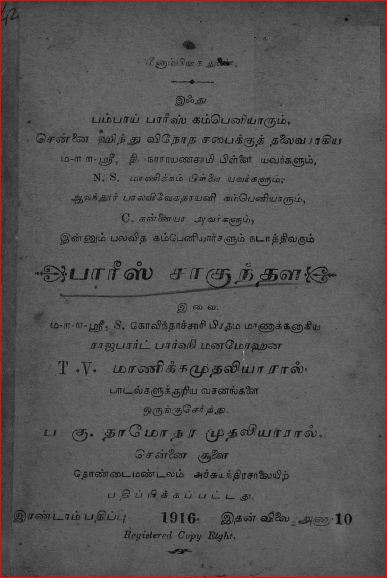 42
மீனாம்பிகை துணை.
இஃது
பம்பாய் பார்ஸி கம்பெனியாரும்,
சென்னை ஹிந்து விநோத சபைக்குத் தலைவராகிய
ம-ா-ா-ஸ்ரீ, தி. நாராயணசாமி பிள்ளை யவர்களும்,
N. S. மாணிக்கம் பிள்ளை யவர்களும்,
ஆலந்தூர் பாலவிவேகதாயனி கம்பெனியாரும்,
C. கன்னையா அவர்களும்,
இன்னும் பலவித கம்பெனியார்களும் நடாத்திவரும்
பார்ஸி சாகுந்தள
இவை
ம-ா-ா-ஸ்ரீ, S. கோவிந்தாச்சாரி பிரதம மாணாக்கனாகிய
ராஜபார்ட் பார்ஸி மனமோஹன
T. V. மாணிக்கமுதலியாரால்
பாடல்களுக்குரிய வசனங்களை
ஒருங்குசேர்த்து
ப கு. தாமோதர முதலியாரால்,
சென்னை சூளை
தொண்டைமண்டலம் அச்சுயந்திரசாலையிற்
பதிப்பிக்கப்பட்டது.
இரண்டாம் பதிப்பு 1916. இதன் விலை அணா 10
Registered Copy Right.